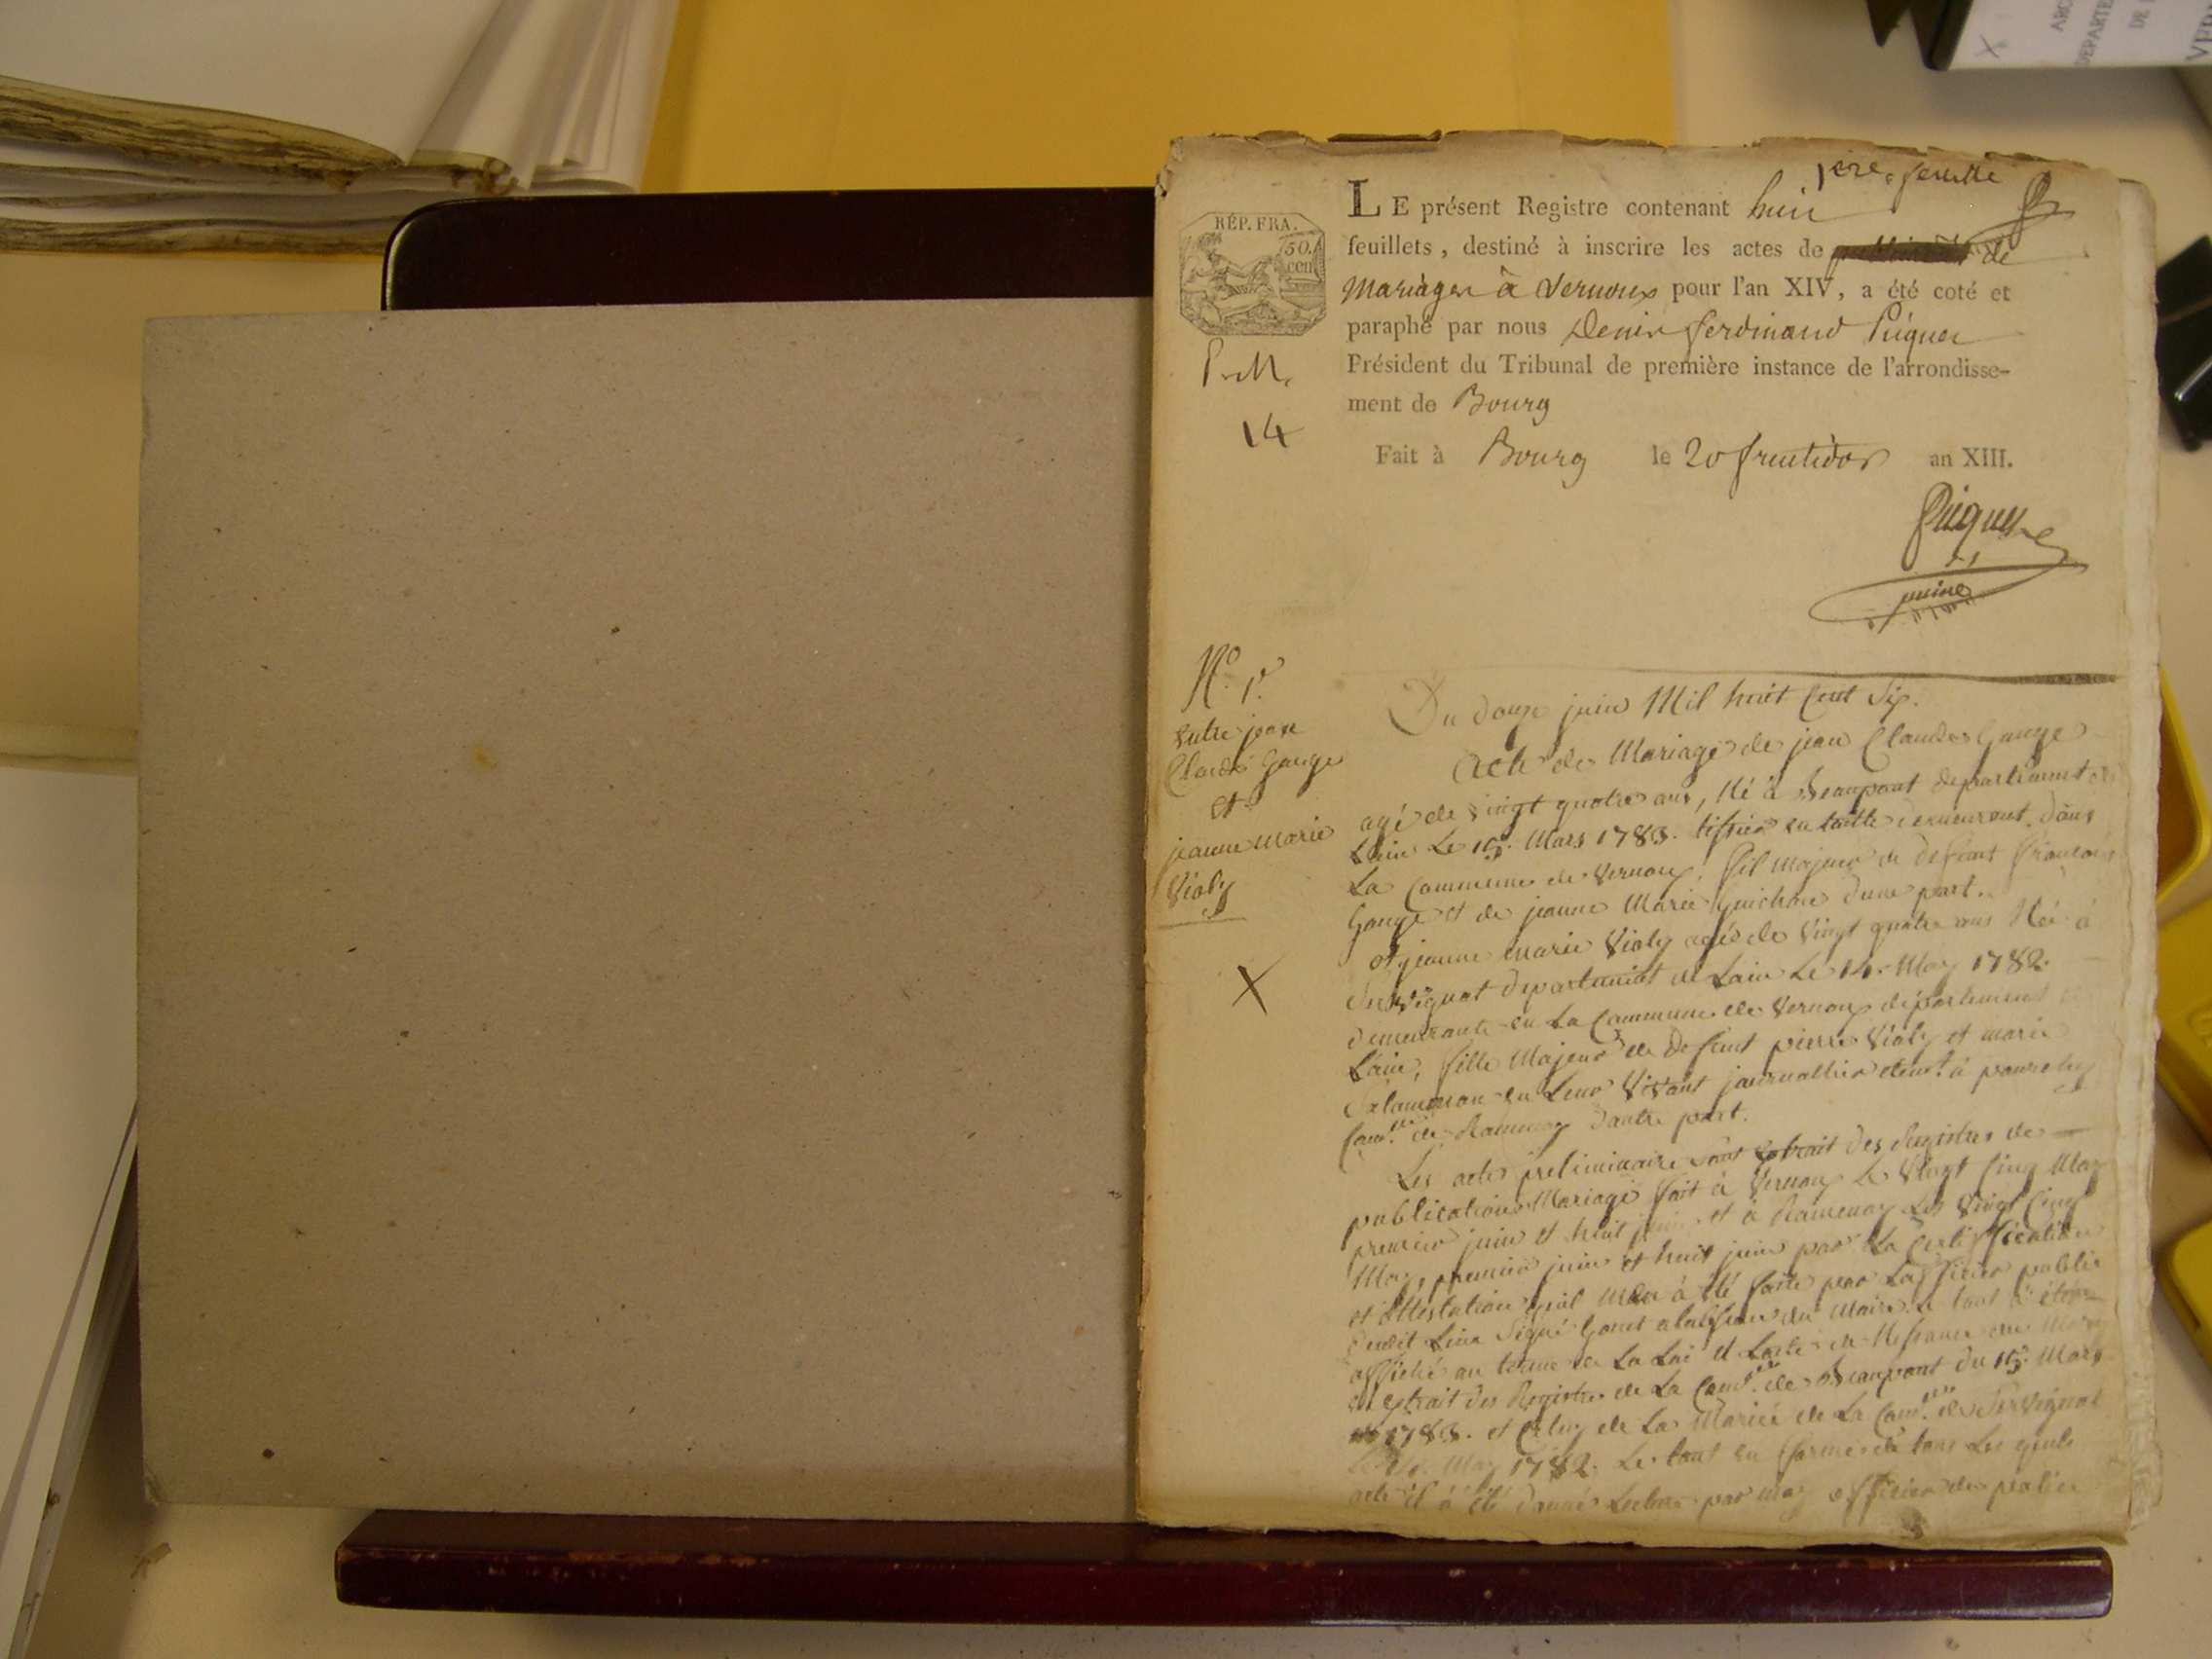 ARC
DEPARTE
DE L
VER
1ere feuille
LE présent Registre contenant huit
feuillets, destiné à inscrire les actes de de
Mariages à Vernoux pour l'an XIV, a été coté et
paraphé par nous Denis ferdinand Piquet
Président du Tribunal de première instance de l'arrondisse-
ment de Bourg
Fait à Bourg le 20 fructidor an XIII.
Piquet
RÉP. FRA.
50.
cen
P.M.
14
N° 1er
Entre jean
Claude Gauge
et
jeanne marie
Vialy
X
Du douze juin Mil huit Cent Six.
Acte de Mariage de jean Claude Gauge
agé de vingt quatre ans, Né à Beaupont departement de
Lain Le 15. Mars 1783. tissier en toille demeurant dans
La Commune de Vernoux, fil majeur de defunt francois
Gauge et de jeanne Marie Guichon dune part.
et jeanne Marie Vialy agée de Vingt quatre ans Née à
Servignat departement de Lain Le 14. May 1782.
demeurante en La Commune de Vernoux département de
Lain, fille Majeur de Defunt pierre Vialy et marie
en Leur Vivant journallier demt. à
Comne de Ramenay dautre part.
Les acte preliminaire sont extrait des Registres de
publications Mariage fait à Vernoux Le Vingt Cinq May
premier juin et huit juin et à Ramenay Les Vingt Cinq
May, premier juin et huit juin par La Certiffication
et attestation quil men à été faite par Lofficier public
dudit Lieu Signé Gonet alabsence du Maire Le tout à été
affiché au terme de La Loi et Lacte de Nessance du
extrait des Registres de La Comne de Beaupont du 15. Mars
1783. et Celuy de La Mariée de La Comne de Servignat
Le 14. May 1782. Le tout en forme de tous Les quels
acte il à été donné Lecture par moy officier de